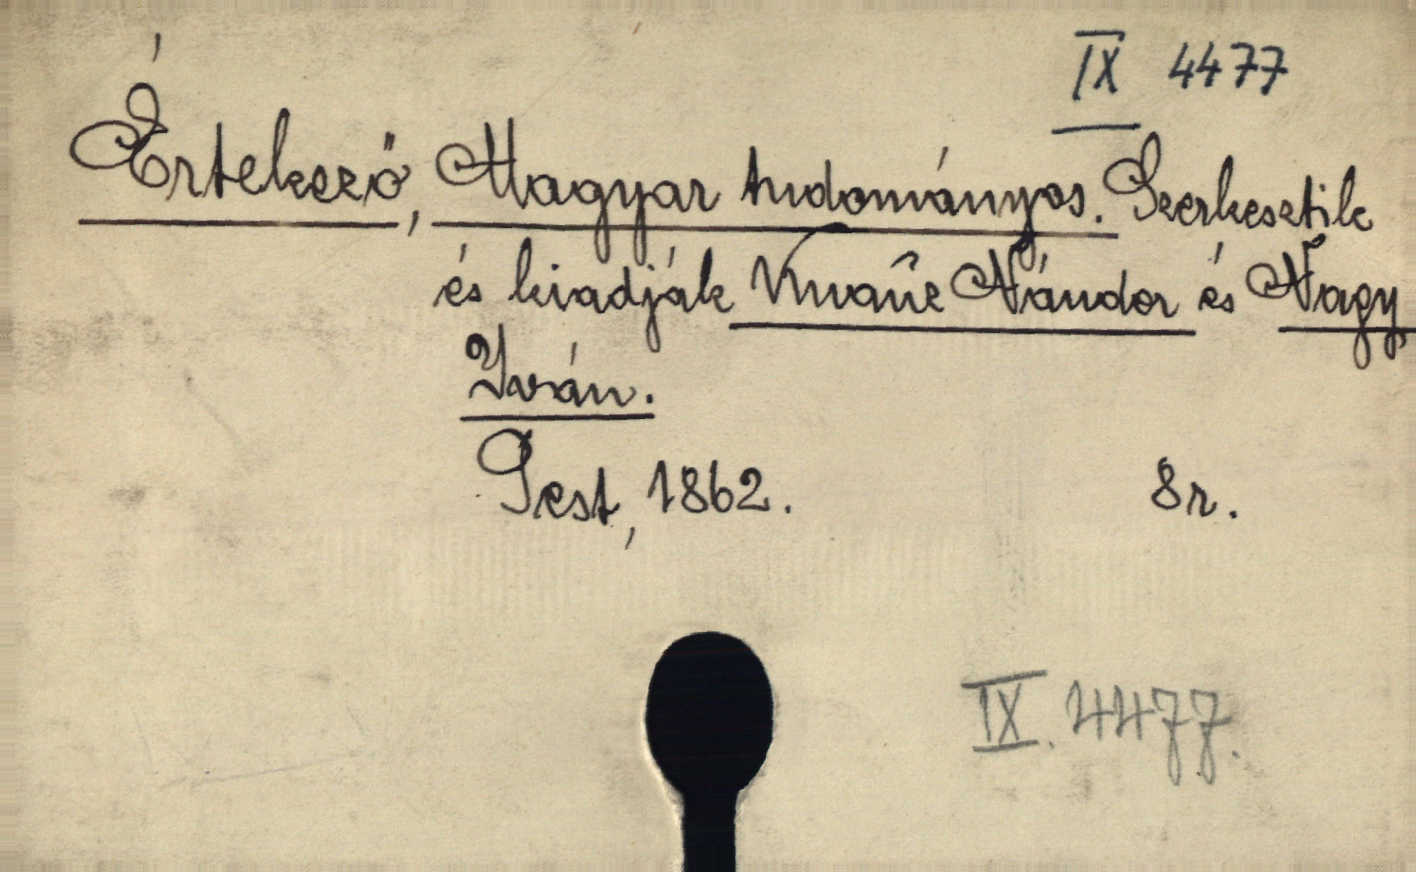 IX 4477
Értekező, Magyar tudományos. Szerkesztik
és kiadják Knauz Nándor és Nagy
Iván.
Pest, 1862. 8r.
IX. 4477.